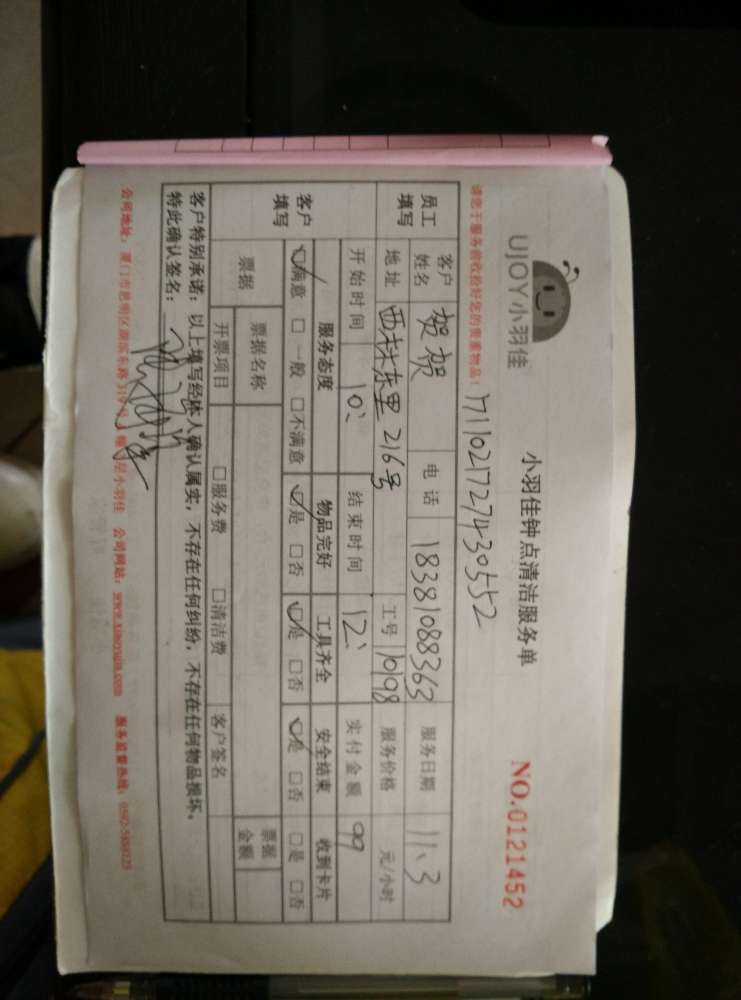 UJOY小羽佳
小羽佳钟点清洁服务单
NO.0121452
请您于服务前收捡好您的贵重物品！
171102172743055 2
员工填写 客户姓名 贺贺 电话 18381088363 服务日期 11、3
地址 西林东里216号 工号 10198 服务价格 元/小时
开始时间 10： 结束时间 12： 实付金额 99
客户填写 服务态度 物品完好 工具齐全 安全结束 收到卡片
☑满意 □一般 □不满意 ☑是 □否 ☑是 □否 ☑是 □否 □是 □否
票据 票据名称 票据金额
开票项目 □服务费 □清洁费 客户签名
客户特别承诺：以上填写经本人确认属实，不存在任何纠纷，不存在任何物品损坏。
特此确认签名：
公司地址：厦门市思明区 小羽佳 公司网站：www.xiaoyujia.com 服务监督热线：